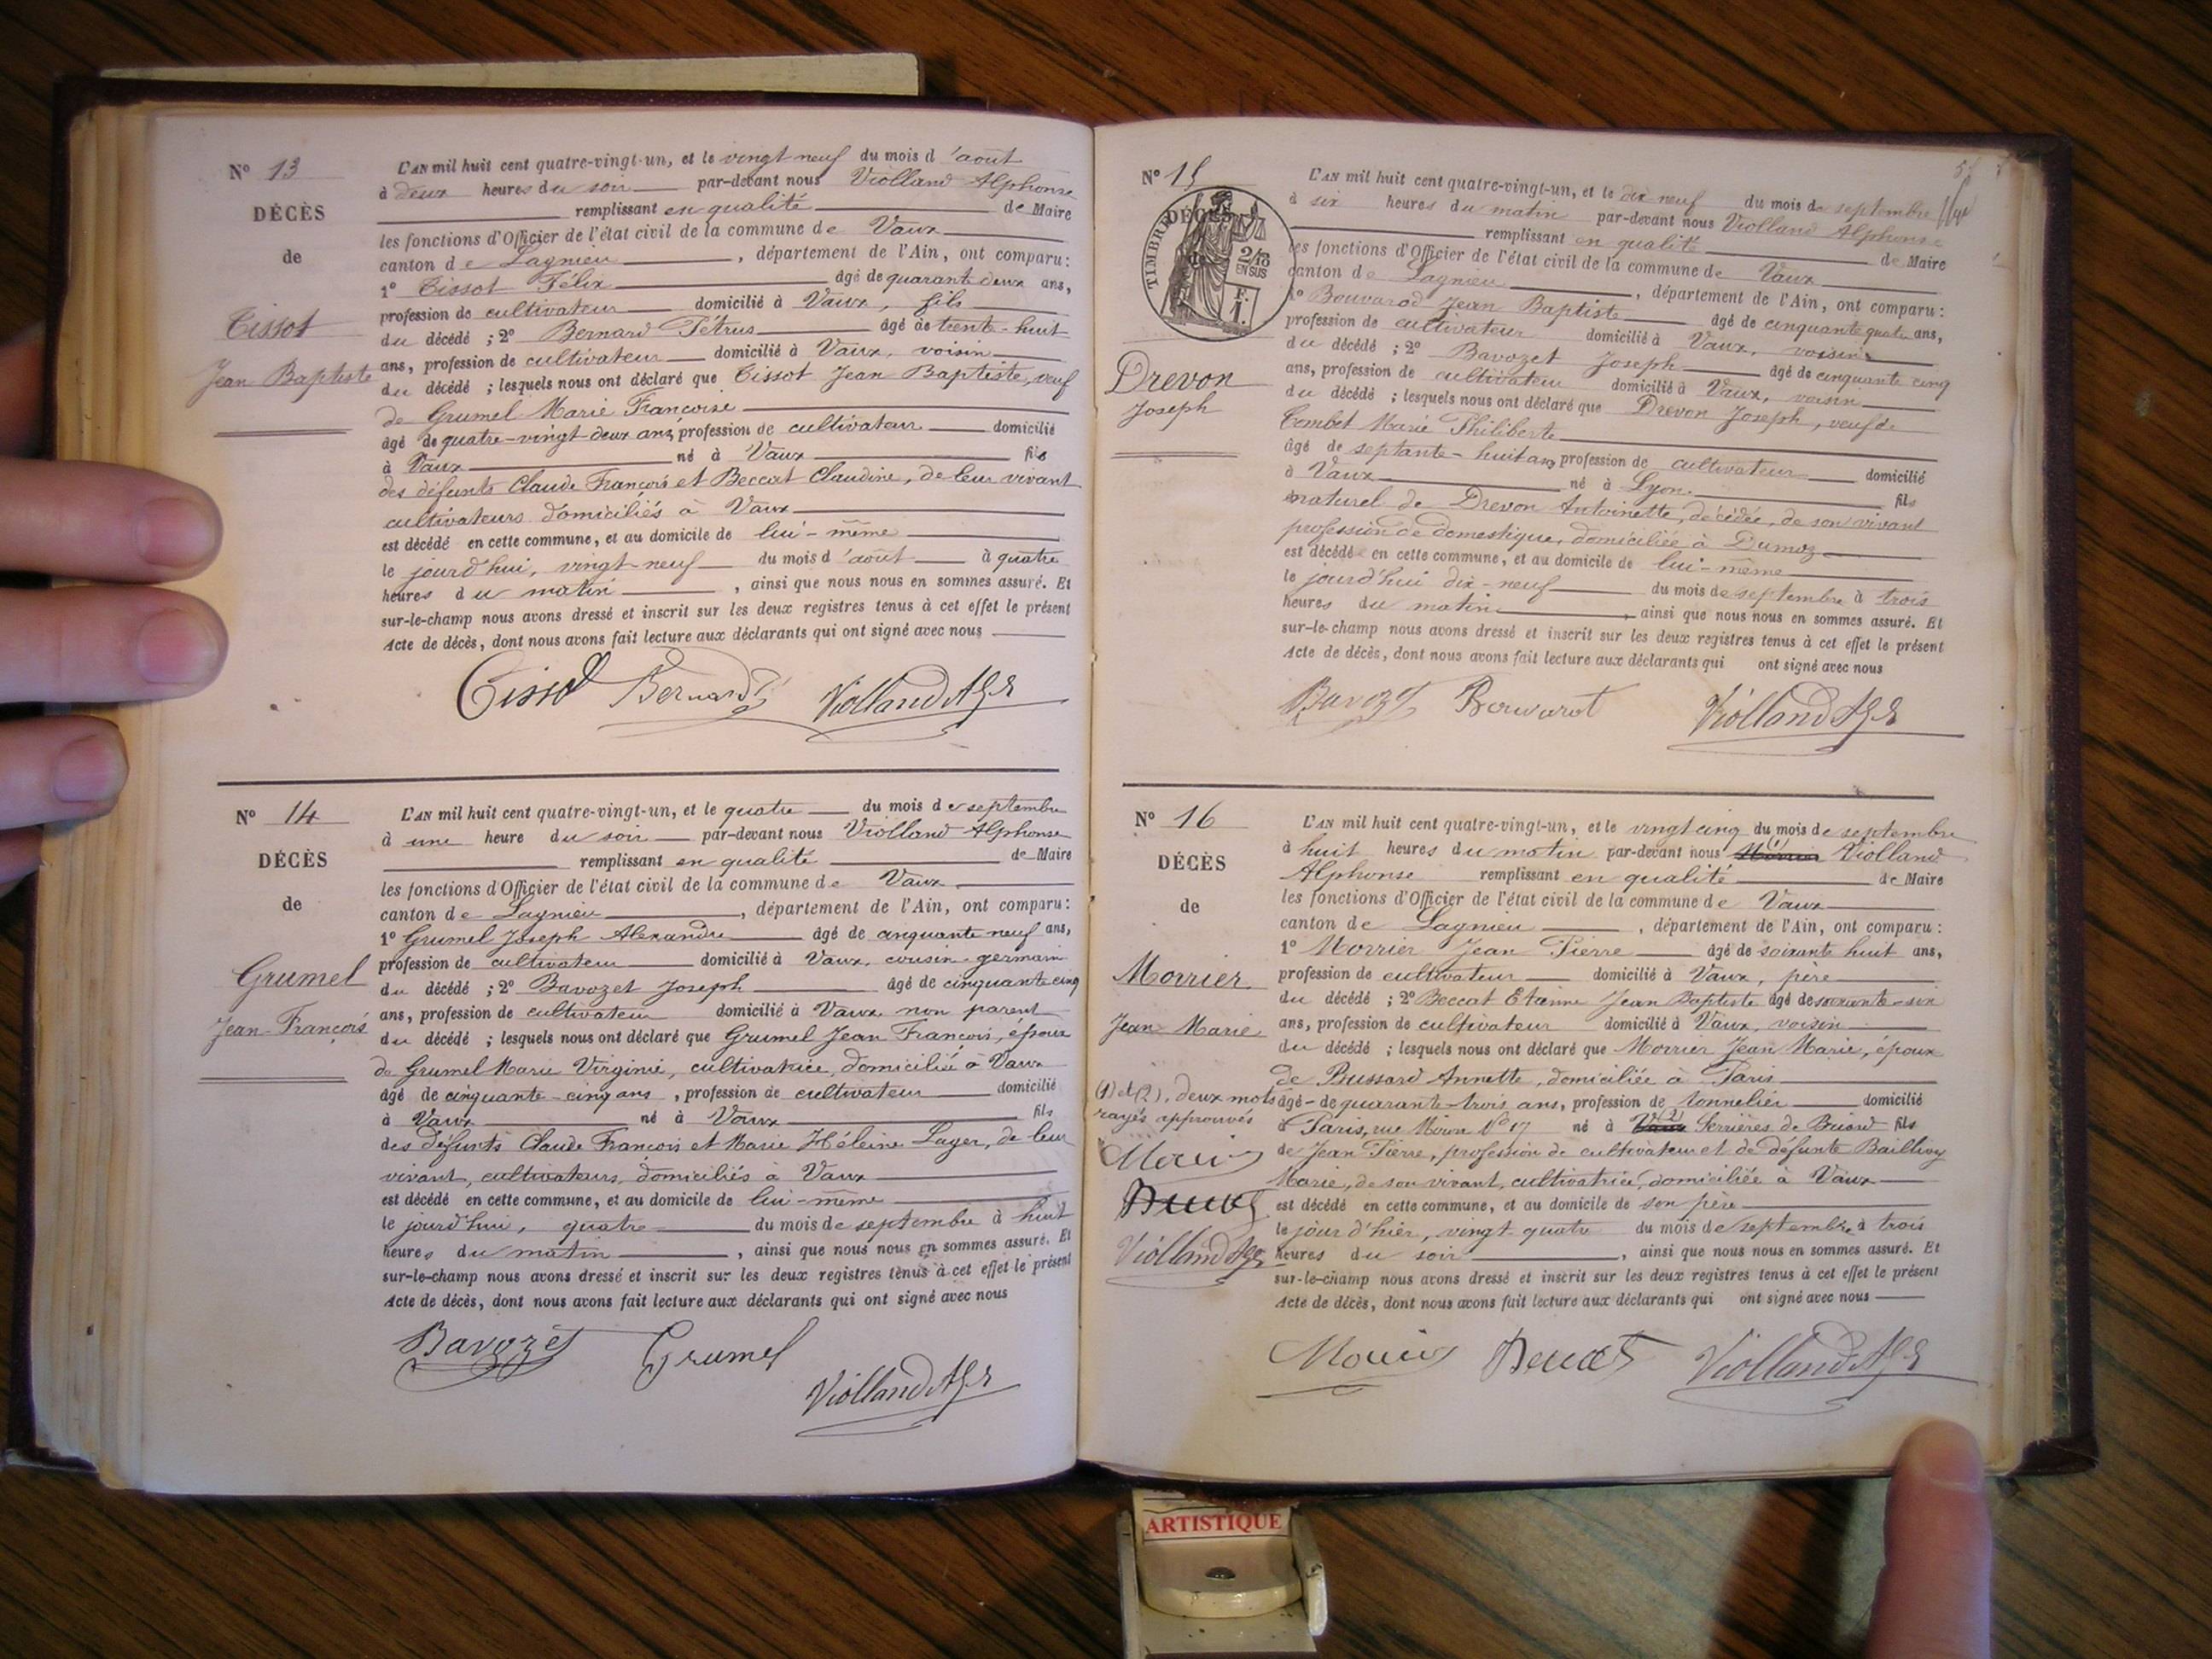 N° 13
DÉCÈS
de
Tissot
Jean Baptiste
L'AN mil huit cent quatre-vingt-un, et le vingt neuf du mois d'août
à deux heures du soir par-devant nous Violland Alphonse
remplissant en qualité de Maire
les fonctions d'Officier de l'état civil de la commune de Vaux
canton de Lagnieu, département de l'Ain, ont comparu:
1° Tissot Félix âgé de quarante deux ans,
profession de cultivateur domicilié à Vaux, fils
du décédé ; 2° Bernard Pétrus âgé de trente-huit
ans, profession de cultivateur domicilié à Vaux, voisin
du décédé ; lesquels nous ont déclaré que Tissot Jean Baptiste, veuf
de Grumel Marie Françoise
âgé de quatre-vingt deux ans, profession de cultivateur domicilié
à Vaux né à Vaux fils
des défunts Claude François et Beccat Claudine, de leur vivant
cultivateurs domiciliés à Vaux
est décédé en cette commune, et au domicile de lui-même
le jourd'hui, vingt-neuf du mois d'août à quatre
heures du matin, ainsi que nous nous en sommes assuré. Et
sur-le-champ nous avons dressé et inscrit sur les deux registres tenus à cet effet le présent
Acte de décès, dont nous avons fait lecture aux déclarants qui ont signé avec nous
Tissot Bernard P Violland Alp
N° 14
DÉCÈS
de
Grumel
Jean-François
L'AN mil huit cent quatre-vingt-un, et le quatre du mois de septembre
à une heure du soir par-devant nous Violland Alphonse
remplissant en qualité de Maire
les fonctions d'Officier de l'état civil de la commune de Vaux
canton de Lagnieu, département de l'Ain, ont comparu:
1° Grumel Joseph Alexandre âgé de cinquante neuf ans,
profession de cultivateur domicilié à Vaux, cousin-germain
du décédé ; 2° Bavozet Joseph âgé de cinquante cinq
ans, profession de cultivateur domicilié à Vaux non parent
du décédé ; lesquels nous ont déclaré que Grumel Jean François, époux
de Grumel Marie Virginie, cultivatrice, domiciliée à Vaux
âgé de cinquante-cinq ans, profession de cultivateur domicilié
à Vaux né à Vaux fils
des défunts Claude François et Marie Hélène Luyer, de leur
vivant, cultivateurs, domiciliés à Vaux
est décédé en cette commune, et au domicile de lui-même
le jourd'hui, quatre du mois de septembre à huit
heures du matin, ainsi que nous nous en sommes assuré. Et
sur-le-champ nous avons dressé et inscrit sur les deux registres tenus à cet effet le présent
Acte de décès, dont nous avons fait lecture aux déclarants qui ont signé avec nous
Bavozet Grumel Violland Alp
N° 15
DÉCÈS
de
TIMBRE
2/10
EN SUS
F.
1.
Drevon
Joseph
L'AN mil huit cent quatre-vingt-un, et le dix neuf du mois de septembre
à six heures du matin par-devant nous Violland Alphonse
remplissant en qualité de Maire
les fonctions d'Officier de l'état civil de la commune de Vaux
canton de Lagnieu, département de l'Ain, ont comparu:
1° Bouvarod Jean Baptiste âgé de cinquante quatre ans,
profession de cultivateur domicilié à Vaux, voisin
du décédé ; 2° Bavozet Joseph âgé de cinquante cinq
ans, profession de cultivateur domicilié à Vaux, voisin
du décédé ; lesquels nous ont déclaré que Drevon Joseph, veuf de
Combet Marie Philiberte
âgé de septante-huit ans, profession de cultivateur domicilié
à Vaux né à Lyon fils
naturel de Drevon Antoinette, décédée, de son vivant
profession de domestique, domiciliée à Dumoz
est décédé en cette commune, et au domicile de lui-même
le jourd'hui dix-neuf du mois de septembre à trois
heures du matin, ainsi que nous nous en sommes assuré. Et
sur-le-champ nous avons dressé et inscrit sur les deux registres tenus à cet effet le présent
Acte de décès, dont nous avons fait lecture aux déclarants qui ont signé avec nous
Bavozet Bouvarot Violland Alp
N° 16
DÉCÈS
de
Morrier
Jean-Marie
(1) et (2), deux mots
rayés approuvés
Violland Alp
L'AN mil huit cent quatre-vingt-un, et le vingt cinq du mois de septembre
à huit heures du matin par-devant nous (1) Violland
Alphonse remplissant en qualité de Maire
les fonctions d'Officier de l'état civil de la commune de Vaux
canton de Lagnieu, département de l'Ain, ont comparu:
1° Morrier Jean Pierre âgé de soixante huit ans,
profession de cultivateur domicilié à Vaux, père
du décédé ; 2° Beccat Etienne Jean Baptiste âgé de soixante-six
ans, profession de cultivateur domicilié à Vaux, voisin
du décédé ; lesquels nous ont déclaré que Morrier Jean Marie, époux
de Bussard Annette, domiciliée à Paris
âgé de quarante-trois ans, profession de tonnelier domicilié
à Paris, rue N° 17 né à Vaux (2) Serrières de Briord fils
de Jean Pierre, profession de cultivateur et de défunte Baillivy
Marie, de son vivant, cultivatrice, domiciliée à Vaux
est décédé en cette commune, et au domicile de son père
le jour d'hier, vingt quatre du mois de septembre à trois
heures du soir, ainsi que nous nous en sommes assuré. Et
sur-le-champ nous avons dressé et inscrit sur les deux registres tenus à cet effet le présent
Acte de décès, dont nous avons fait lecture aux déclarants qui ont signé avec nous
Violland Alp
ARTISTIQUE